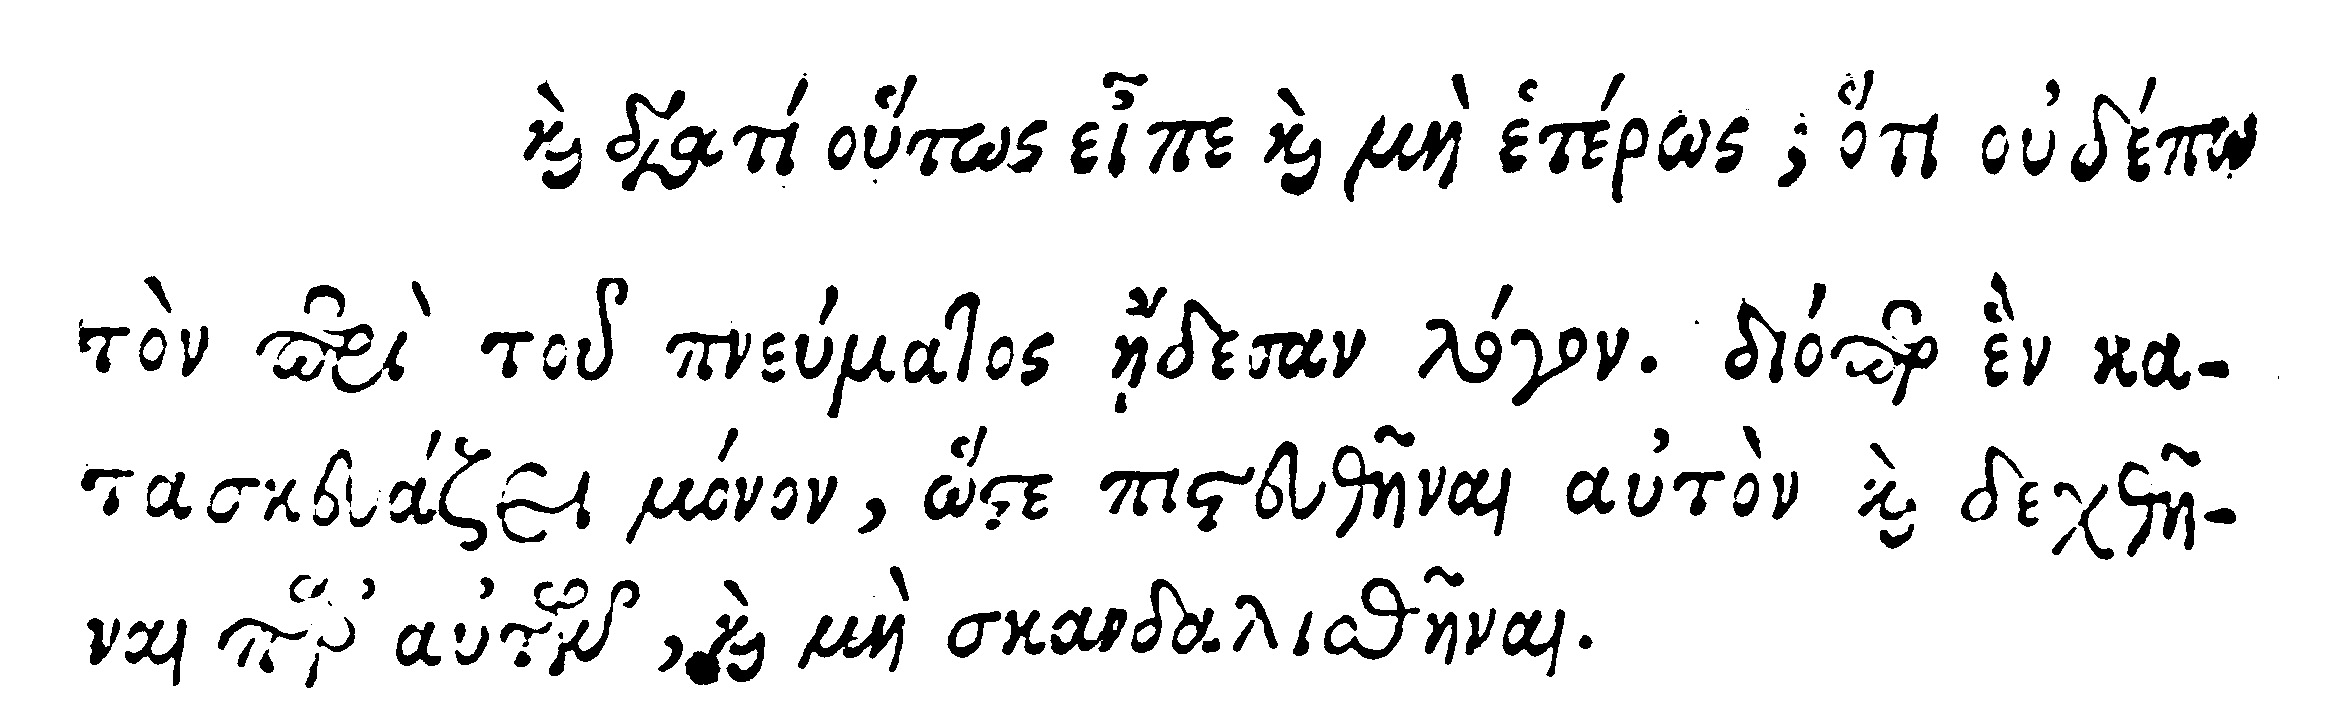 καὶ διατί οὕτως εἶπε καὶ μὴ ἑτέρως; ὅτι οὐδέπω
τὸν περὶ τοῦ πνεύματος ᾔδεσαν λόγον. διόπερ ἓν κα-
τασκευάζει μόνον, ὥστε πιστευθῆναι αὐτὸν καὶ δεχθῆ-
ναι παρ' αὐτῶν, καὶ μὴ σκανδαλισθῆναι.